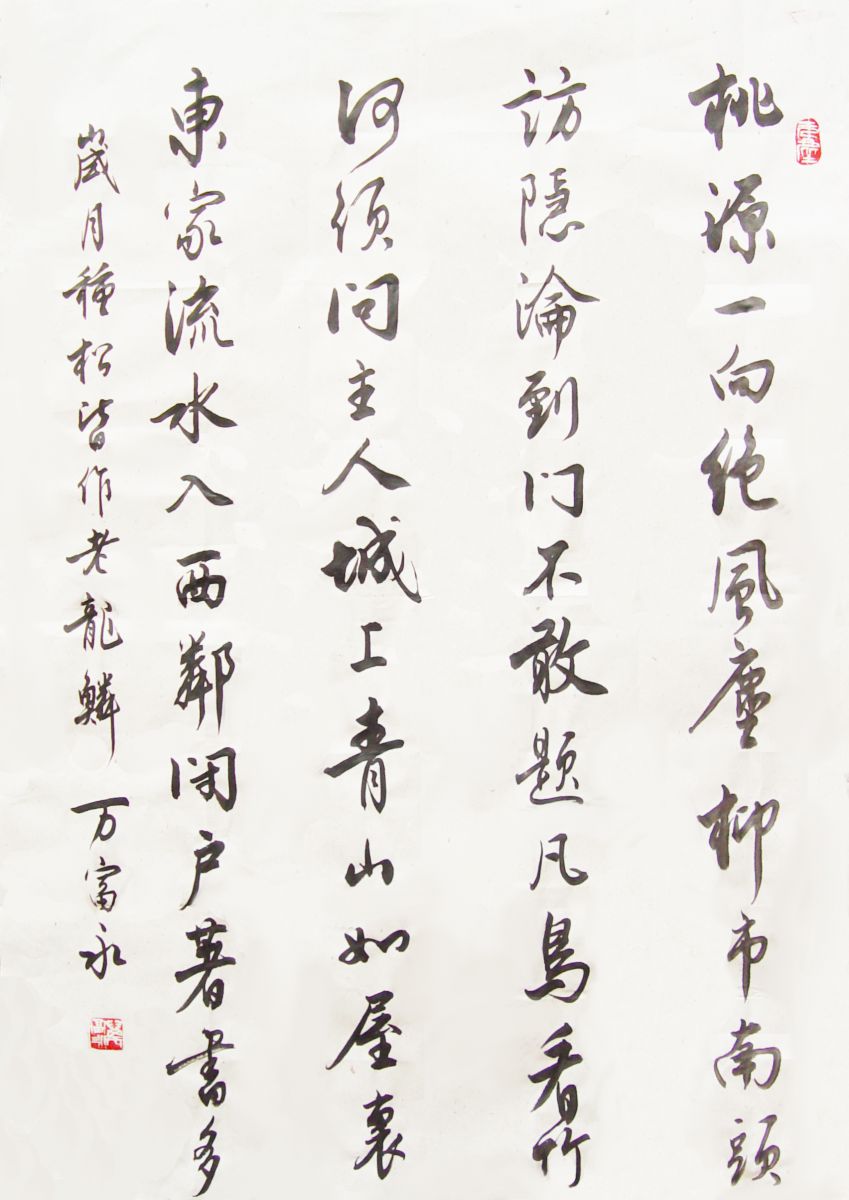 桃源一向绝風塵柳市南頭
訪隱淪到门不敢题凡鳥看竹
何须问主人城上青山如屋裏
東家流水入西鄰闭户著書多
歲月種松皆作老龍鱗 万富永